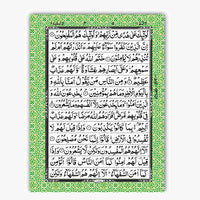 اُولٰٓئِكَ عَلٰى هُدًى مِّنْ رَّبِّهِمْ وَاُولٰٓئِكَ هُمُ الْمُفْلِحُوْنَ
اِنَّ الَّذِيْنَ كَفَرُوْا سَوَآءٌ عَلَيْهِمْ ءَاَنْذَرْتَهُمْ اَمْ لَمْ
تُنْذِرْهُمْ لَا يُؤْمِنُوْنَ خَتَمَ اللّٰهُ عَلٰى قُلُوْبِهِمْ وَعَلٰى
سَمْعِهِمْ وَعَلٰٓى اَبْصَارِهِمْ غِشَاوَةٌ وَّلَهُمْ عَذَابٌ
عَظِيْمٌ وَمِنَ النَّاسِ مَنْ يَّقُوْلُ اٰمَنَّا بِاللّٰهِ وَبِالْيَوْمِ
الْاٰخِرِ وَمَا هُمْ بِمُؤْمِنِيْنَ يُخٰدِعُوْنَ اللّٰهَ وَالَّذِيْنَ
اٰمَنُوْا وَمَا يَخْدَعُوْنَ اِلَّآ اَنْفُسَهُمْ وَمَا يَشْعُرُوْنَ
فِيْ قُلُوْبِهِمْ مَّرَضٌ فَزَادَهُمُ اللّٰهُ مَرَضًا وَلَهُمْ عَذَابٌ
اَلِيْمٌ بِمَا كَانُوْا يَكْذِبُوْنَ وَاِذَا قِيْلَ لَهُمْ لَا
تُفْسِدُوْا فِى الْاَرْضِ قَالُوْٓا اِنَّمَا نَحْنُ مُصْلِحُوْنَ
اَلَآ اِنَّهُمْ هُمُ الْمُفْسِدُوْنَ وَلٰكِنْ لَّا يَشْعُرُوْنَ وَاِذَا قِيْلَ
لَهُمْ اٰمِنُوْا كَمَآ اٰمَنَ النَّاسُ قَالُوْٓا اَنُؤْمِنُ كَمَآ
اٰمَنَ السُّفَهَآءُ اَلَآ اِنَّهُمْ هُمُ السُّفَهَآءُ وَلٰكِنْ